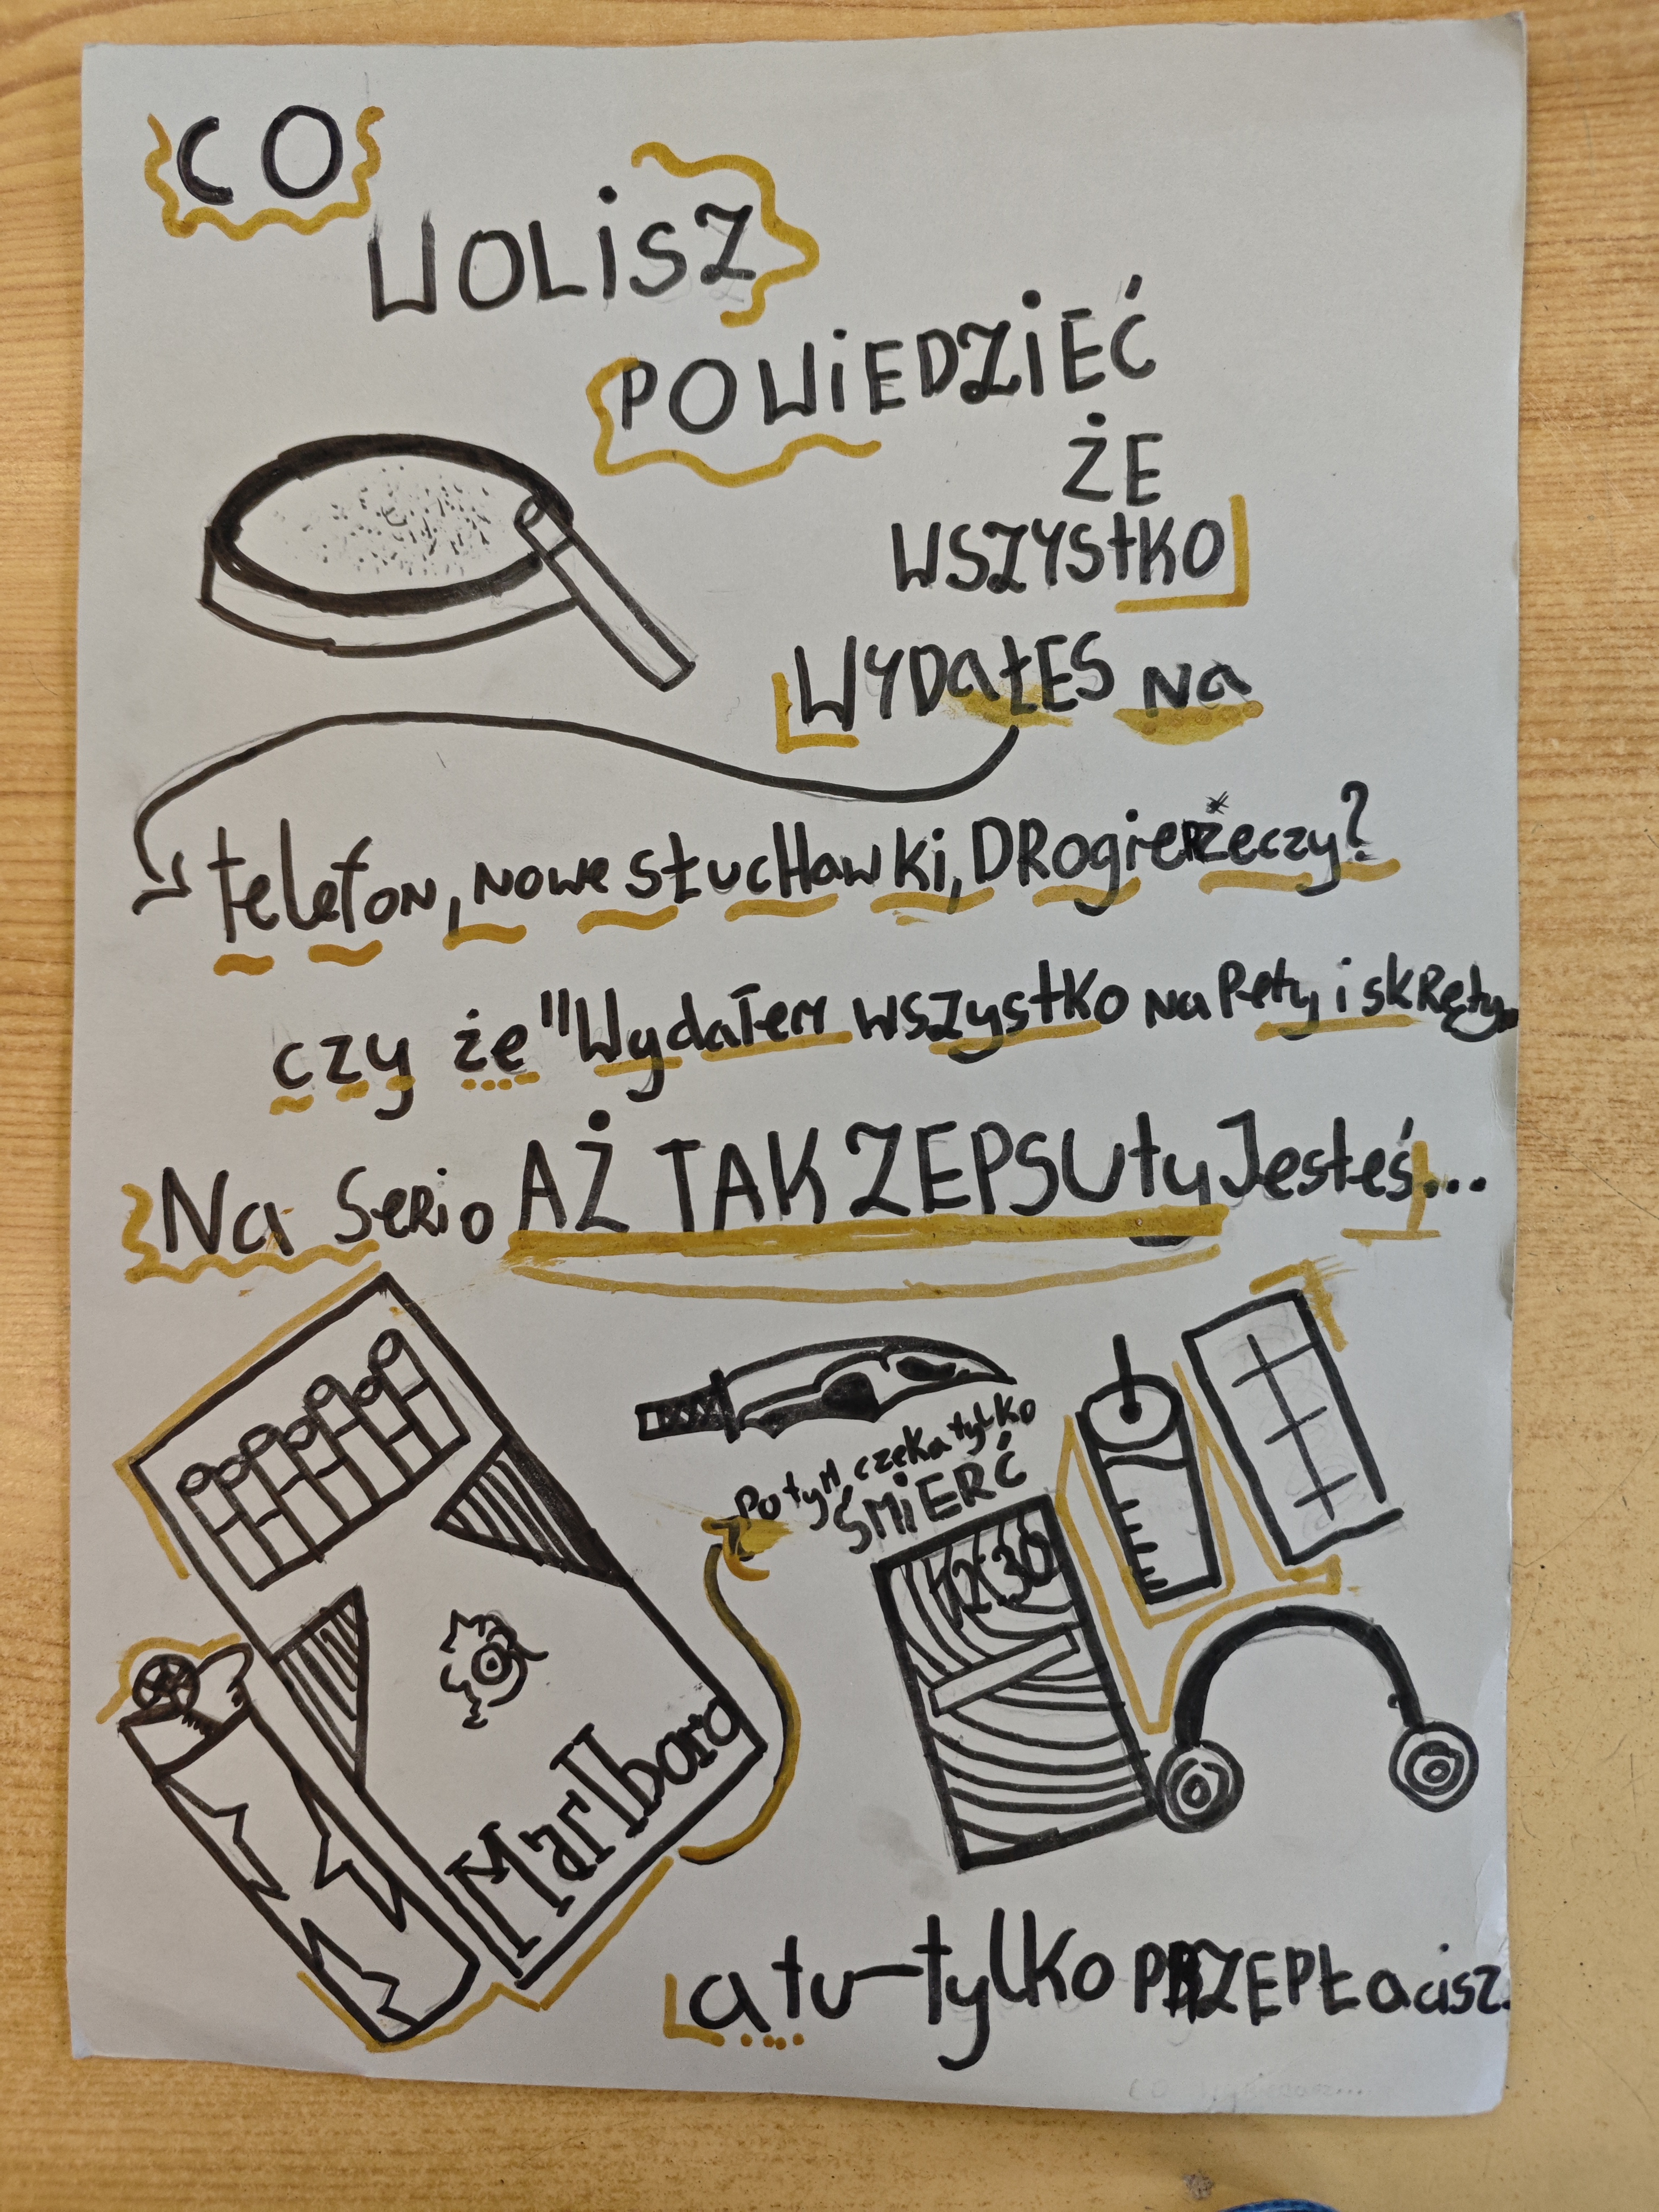 CO
WOLiSZ
POWiEDZiEĆ
ŻE
WSZYStKO
WYDaŁES Na
telefon, Nowe sŁucHawki, DRogie rzeczy?
czy że "Wydałem wszystko Na Pety i skRęty.
Na SeRio AŻ TAK ZEPSUty Jesteś...
Po tyM czeka tylko
ŚMiERĆ
Marlboro
a tu - tylko PRZEPŁacisz.